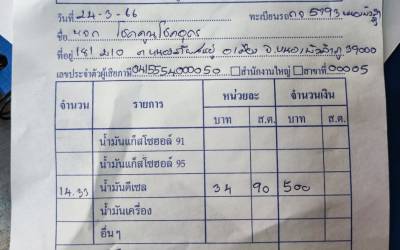 วันที่ 22-3-66 ทะเบียนรถ 5793
ชื่อ หจก โชคคูนโชคอุดร
ที่อยู่ 181 ม.10 อ.เมือง จ.หนองบัวลำภู 39000
เลขประจำตัวผู้เสียภาษี 0415554000050 □สำนักงานใหญ่ □สาขาที่ 00005
จำนวน รายการ หน่วยละ จำนวนเงิน
บาท ส.ต. บาท ส.ต.
น้ำมันแก๊สโซฮอล์ 91
น้ำมันแก๊สโซฮอล์ 95
14.33 น้ำมันดีเซล 34 90 500
น้ำมันเครื่อง
อื่นๆ